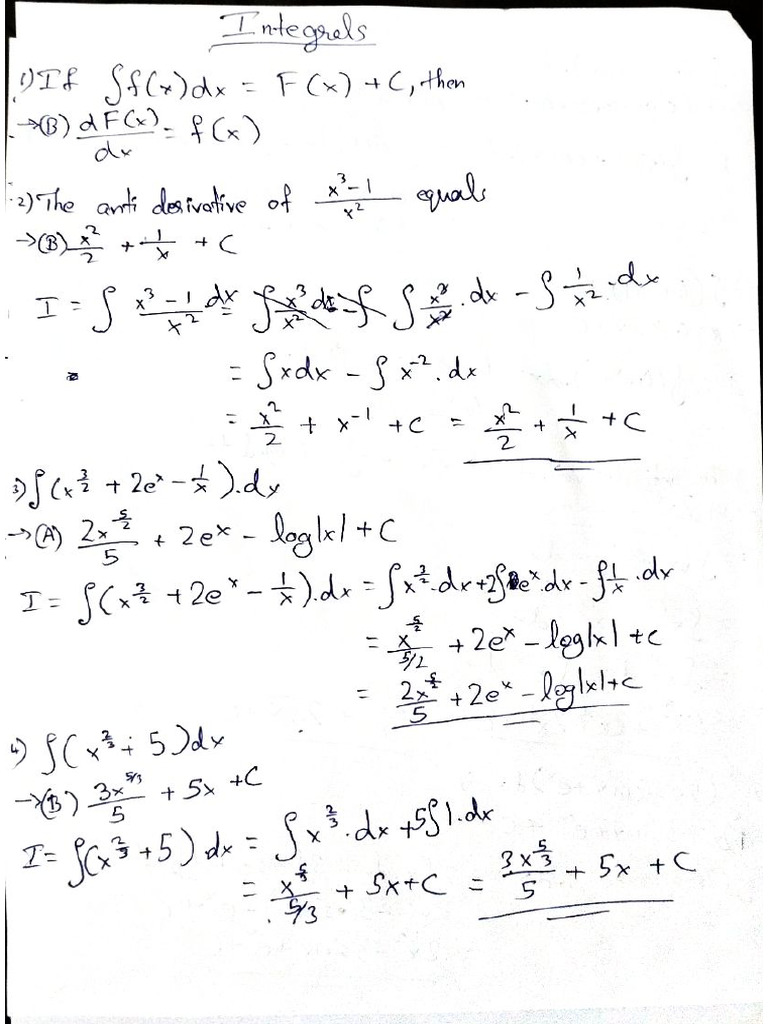 Integrals
1) If ∫f(x)dx = F(x) + C, then
→(B) dF(x)/dx = f(x)
2) The anti derivative of (x³-1)/x² equals
→(B) x²/2 + 1/x + C
I = ∫ (x³-1)/x² dx = ∫ x³/x² dx - ∫ ∫ x³/x² . dx - ∫ 1/x² . dx
= ∫xdx - ∫x⁻² . dx
= x²/2 + x⁻¹ + C = x²/2 + 1/x + C
3) ∫(x^(3/2) + 2eˣ - 1/x).dx
→(A) 2x^(5/2)/5 + 2eˣ - log|x| + C
I = ∫(x^(3/2) + 2eˣ - 1/x).dx = ∫x^(3/2).dx + 2∫eˣ.dx - ∫1/x .dx
= x^(5/2)/(5/2) + 2eˣ - log|x| + C
= 2x^(5/2)/5 + 2eˣ - log|x| + C
4) ∫(x^(2/3) + 5)dx
→(B) 3x^(5/3)/5 + 5x + C
I = ∫(x^(2/3) + 5) dx = ∫x^(2/3) . dx + 5∫1.dx
= x^(5/3)/(5/3) + 5x + C = 3x^(5/3)/5 + 5x + C